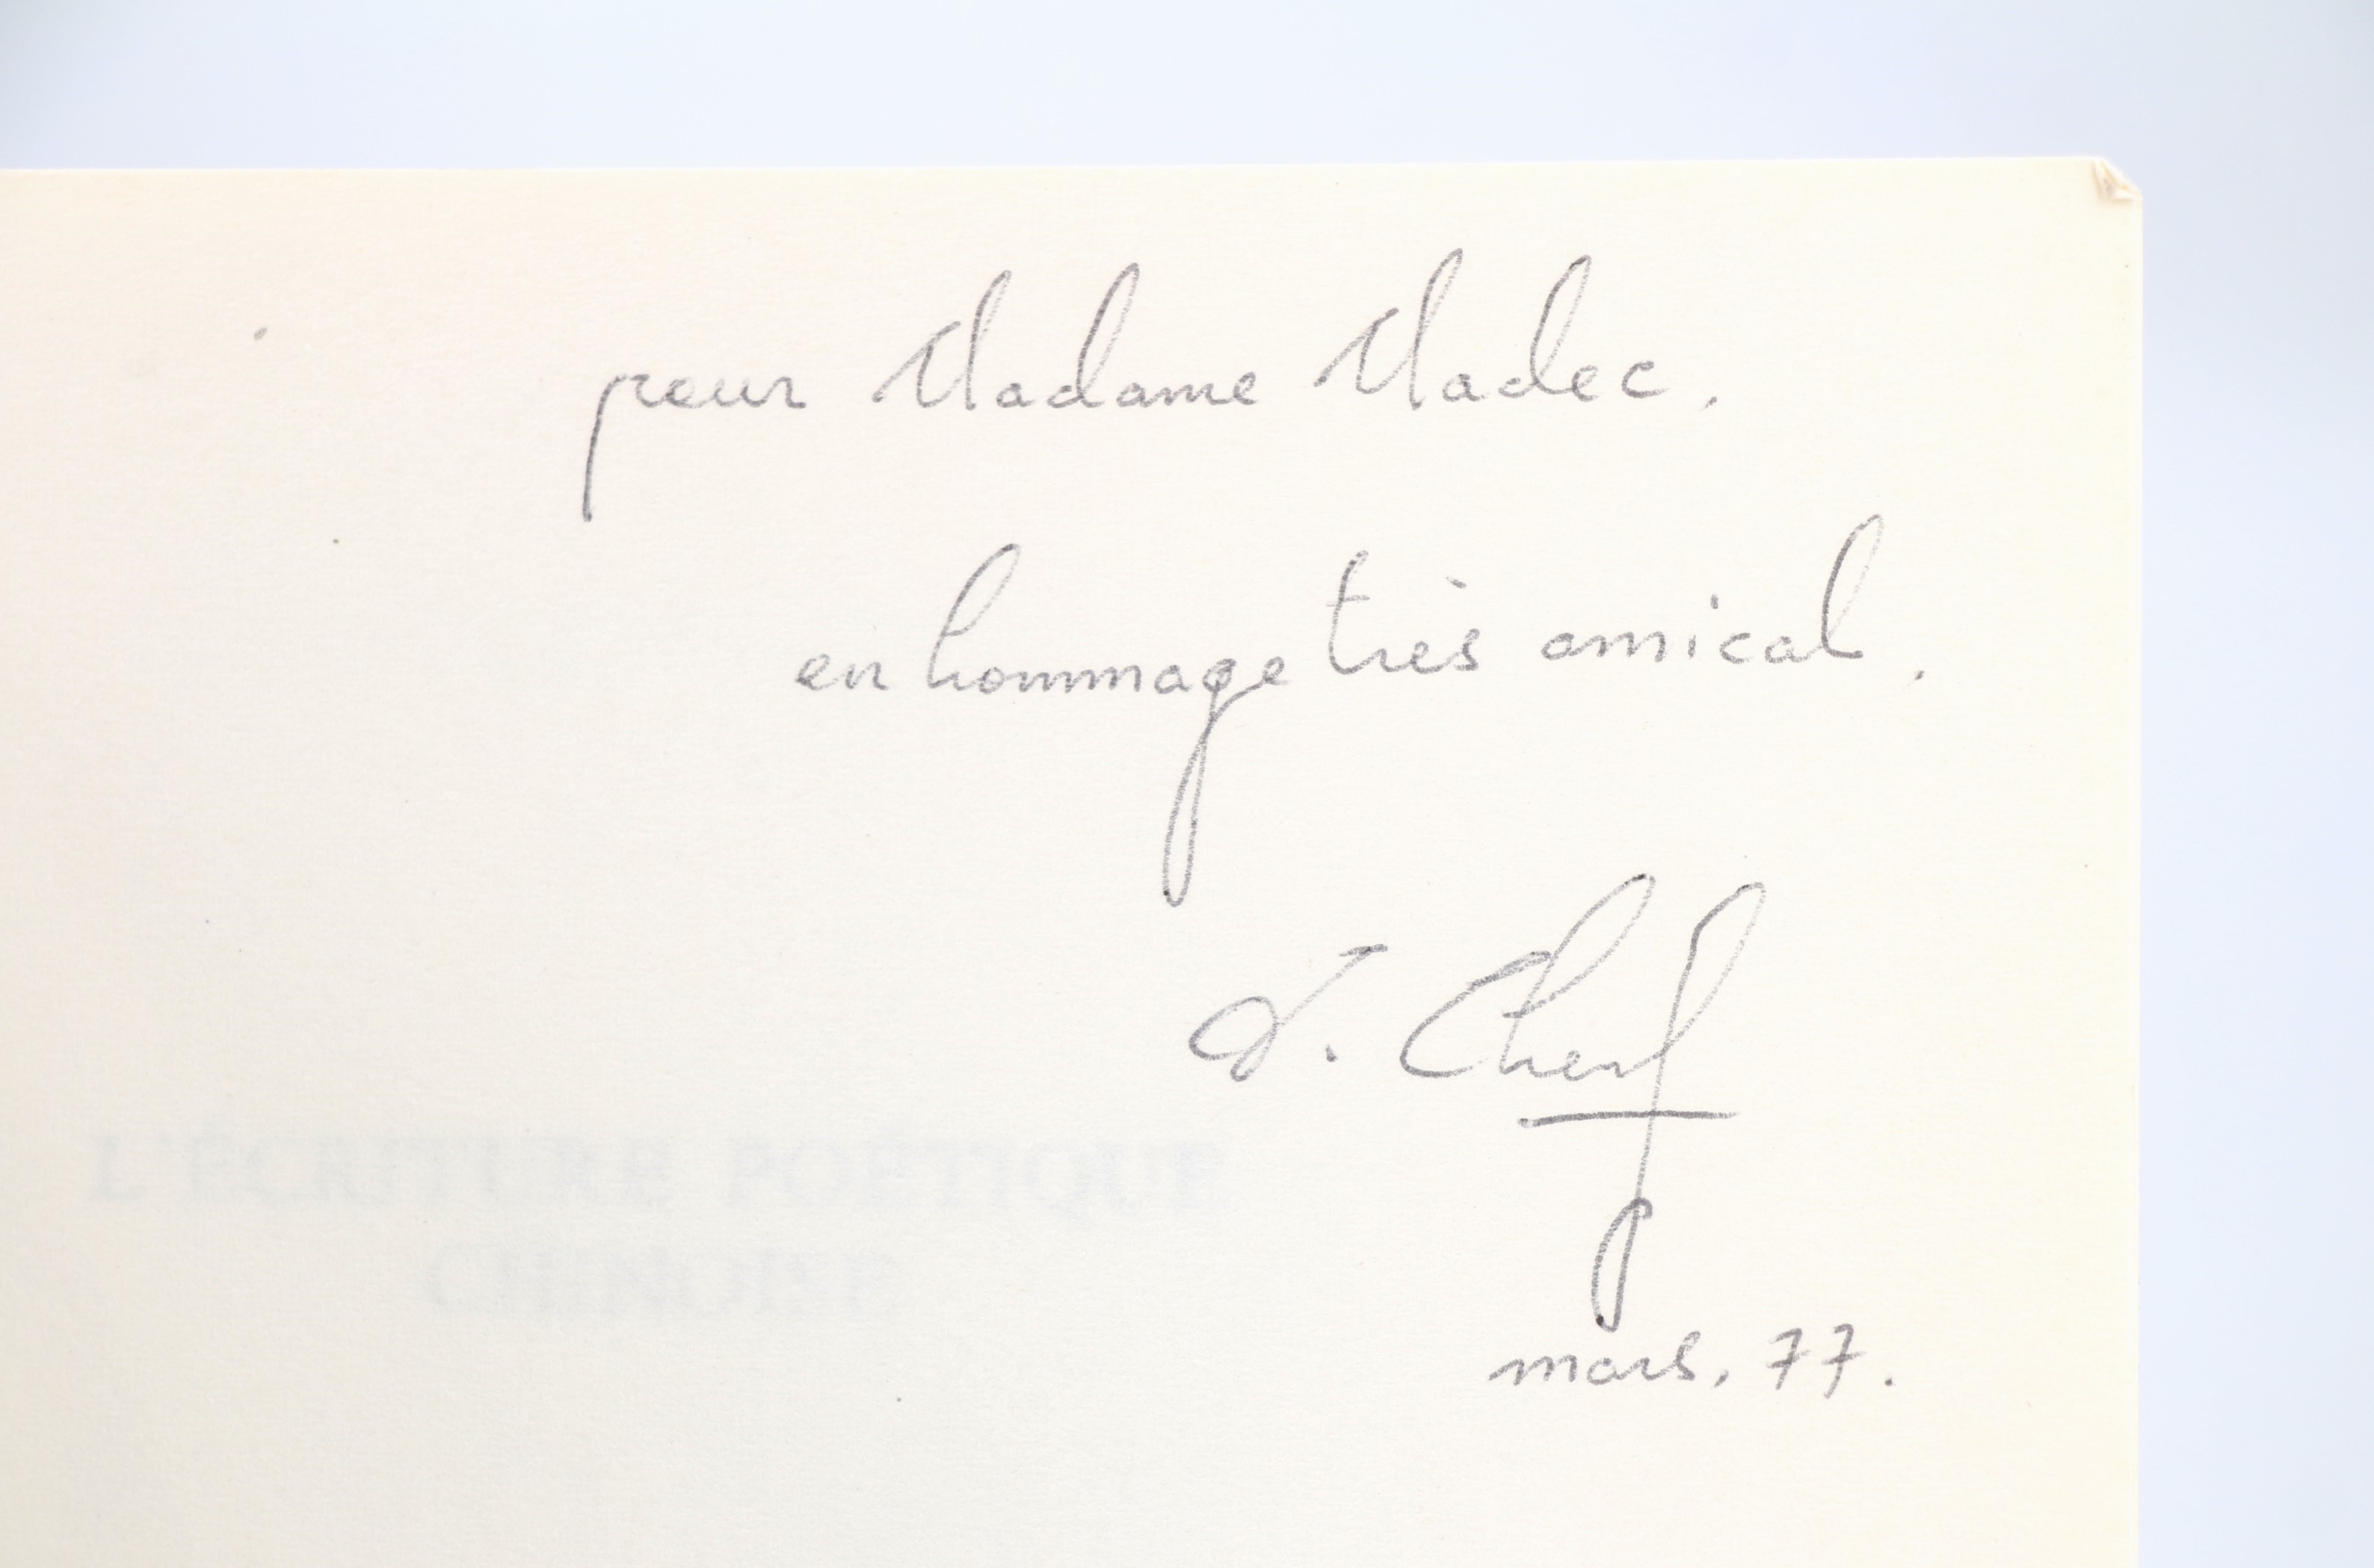 pour Madame Madec,
en hommage très amical,
F. Cheng
L'ÉCRITURE POÉTIQUE
CHINOISE
mars, 77.